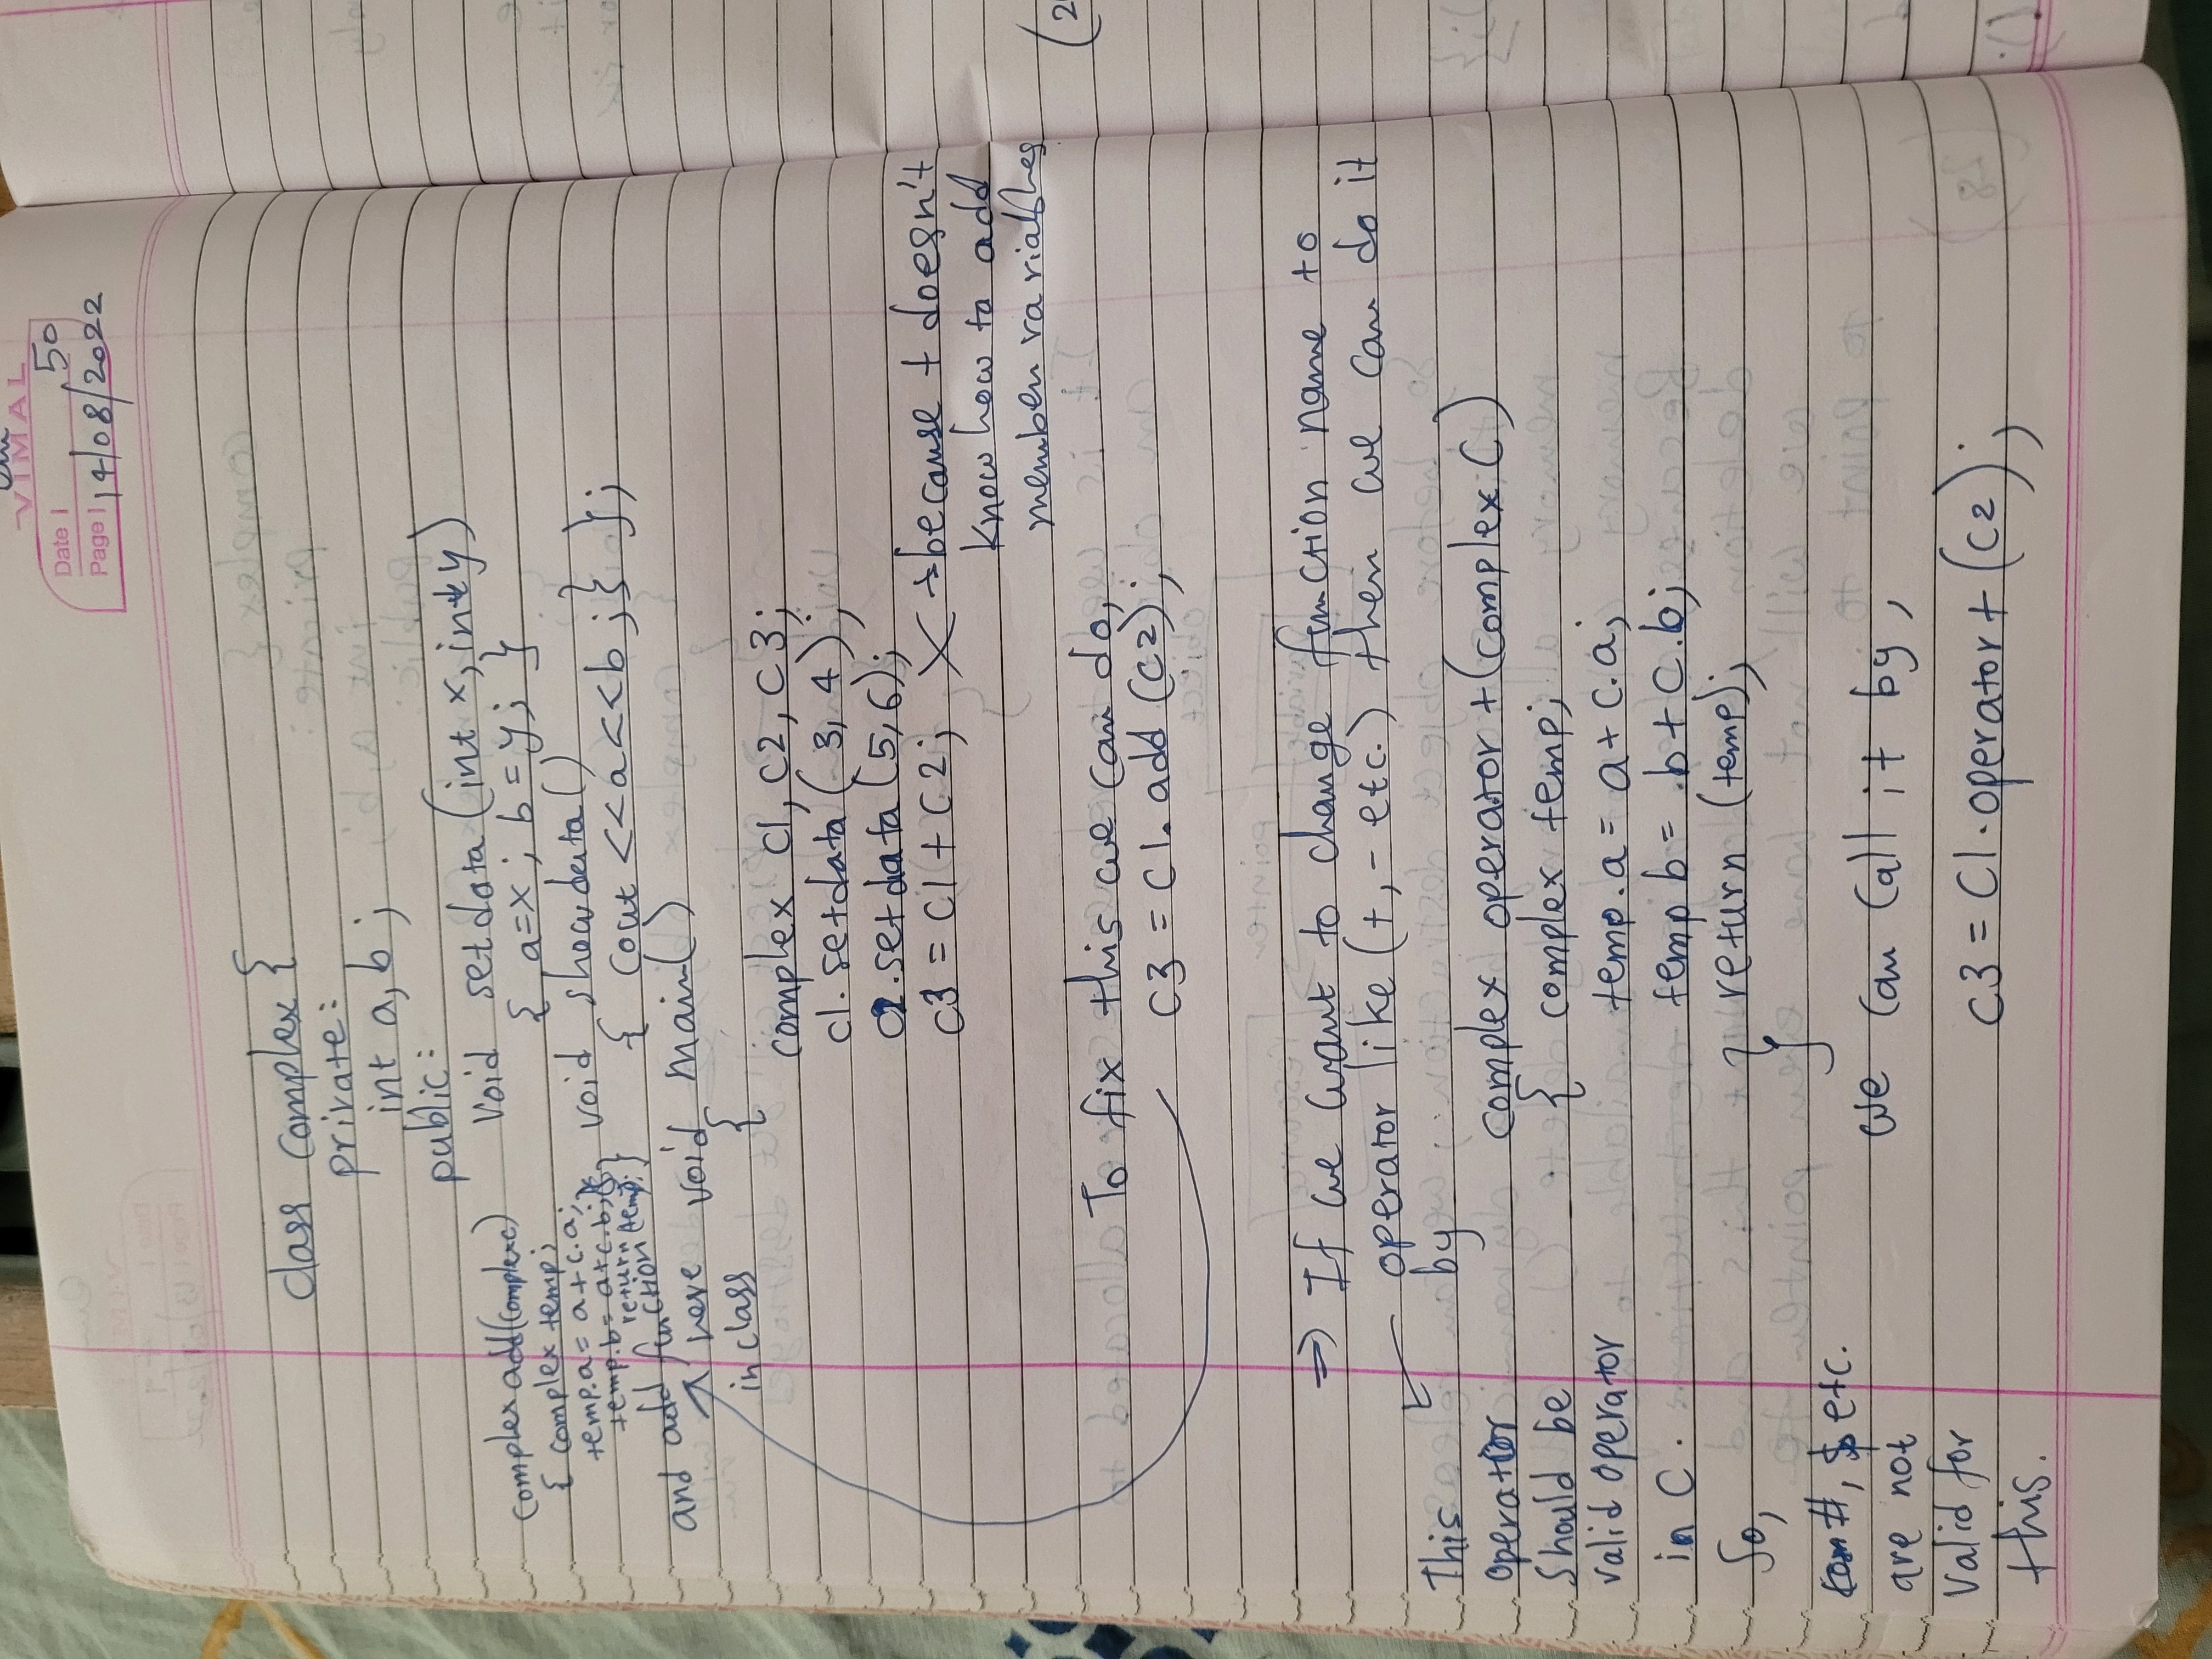 VIMAL
Date | 50
Page | 14/08/2022
class complex {
private:
int a, b ;
public:
void setdata (int x, int y)
{ a=x ; b=y; }
complex add(complex c)
{ complex temp;
temp.a = a + c.a;
temp.b = a+c.b;
return (temp; }
and add function
here
in class
void showdata()
{ cout <<a<<b ; } };
void main()
{
complex c1, c2, c3;
c1. setdata ( 3, 4 );
c2.setdata (5,6);
c3 = c1 + c2; X → because + doesn't
know how to add
member variables
To fix this we can do,
c3 = c1. add (c2);
⇒ If we want to change function name to
operator like (+, - etc.) then we can do it
by
complex operator + (complex C)
{ complex temp;
temp.a = a + c.a;
temp b = .b + c.b;
return (temp);
}
we can call it by,
c3 = c1.operator+ (c2);
This
operator
should be
valid operator
in C.
So,
#, $ etc.
are not
valid for
this.
(2